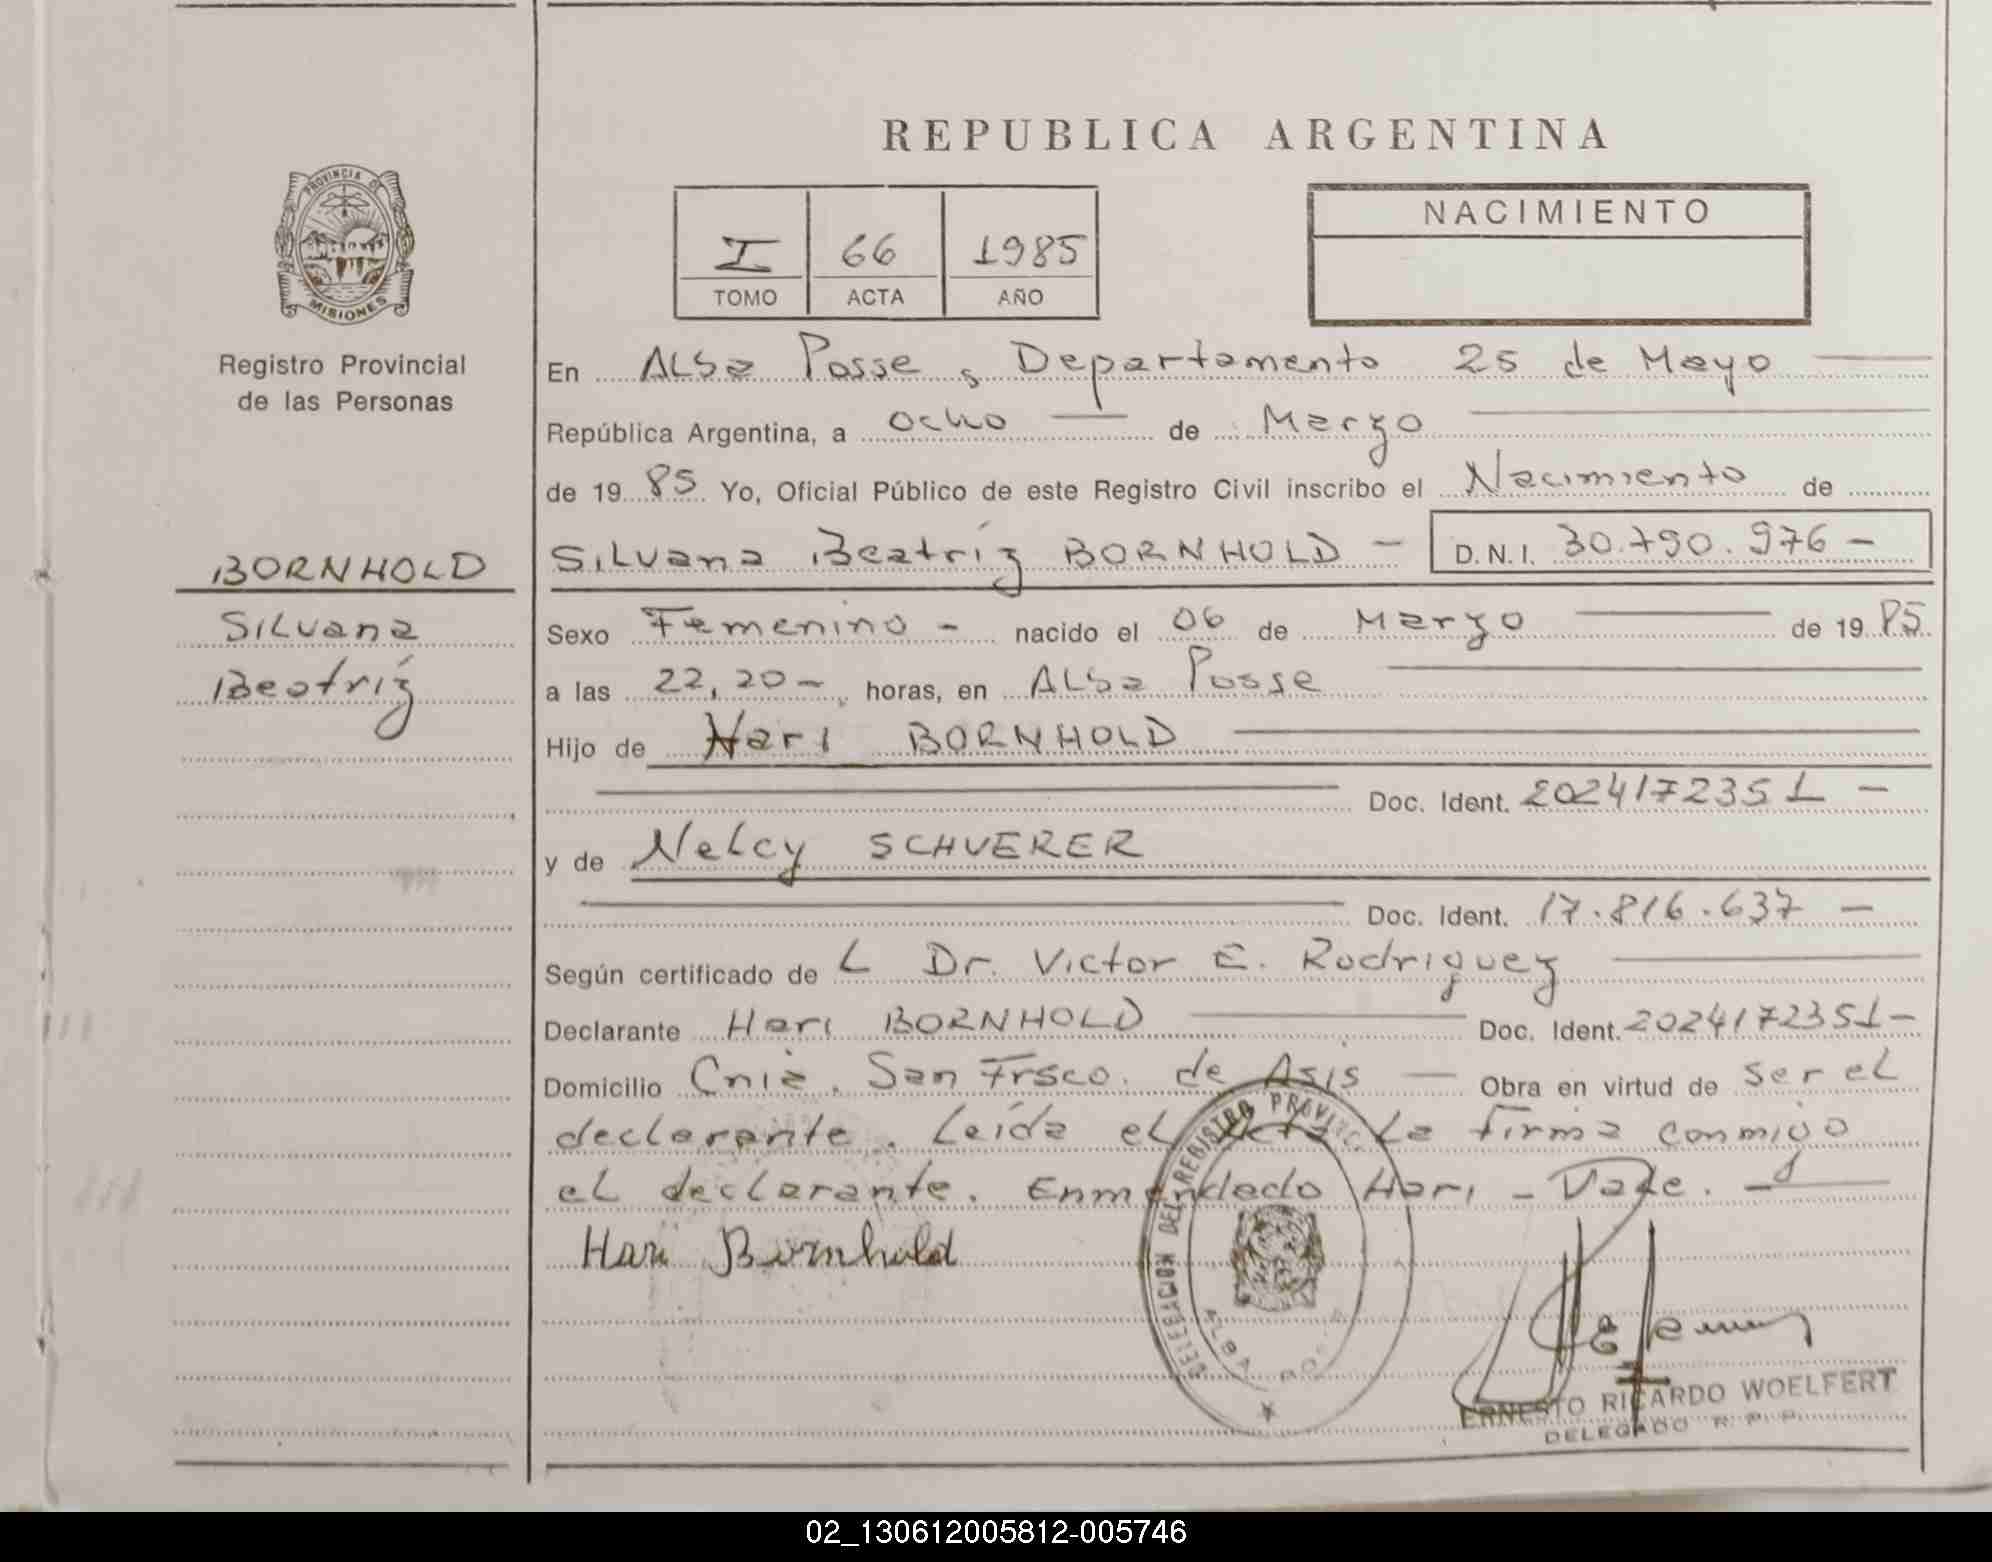 REPUBLICA ARGENTINA
PROVINCIA DE
MISIONES
Registro Provincial
de las Personas
I 66 1985
TOMO ACTA AÑO
NACIMIENTO
En Alba Posse, Departamento 25 de Mayo
República Argentina, a ocho de Marzo
de 19 85 Yo, Oficial Público de este Registro Civil inscribo el Nacimiento de
BORNHOLD
Silvana
Beatríz
Silvana Beatríz BORNHOLD - D.N.I. 30.790.976 -
Sexo Femenino - nacido el 06 de Marzo de 19 85
a las 22,20 - horas, en Alba Posse
Hijo de Hari BORNHOLD
Doc. Ident. 2024172351 -
y de Nelcy SCHVERER
Doc. Ident. 17.816.637 -
Según certificado de L Dr. Victor E. Rodriguez
Declarante Hari BORNHOLD Doc. Ident. 2024172351 -
Domicilio Cnia. San Frsco. de Asis Obra en virtud de ser el
declarante. Leída el Acta La firma conmigo
el declarante. Enmendado Hari - Vale. -
Hari Bornhold
DELEGACION DEL REGISTRO PROVINC
ALBA POSSE
ERNESTO RICARDO WOELFERT
DELEGADO R. P. P.
02_130612005812-005746